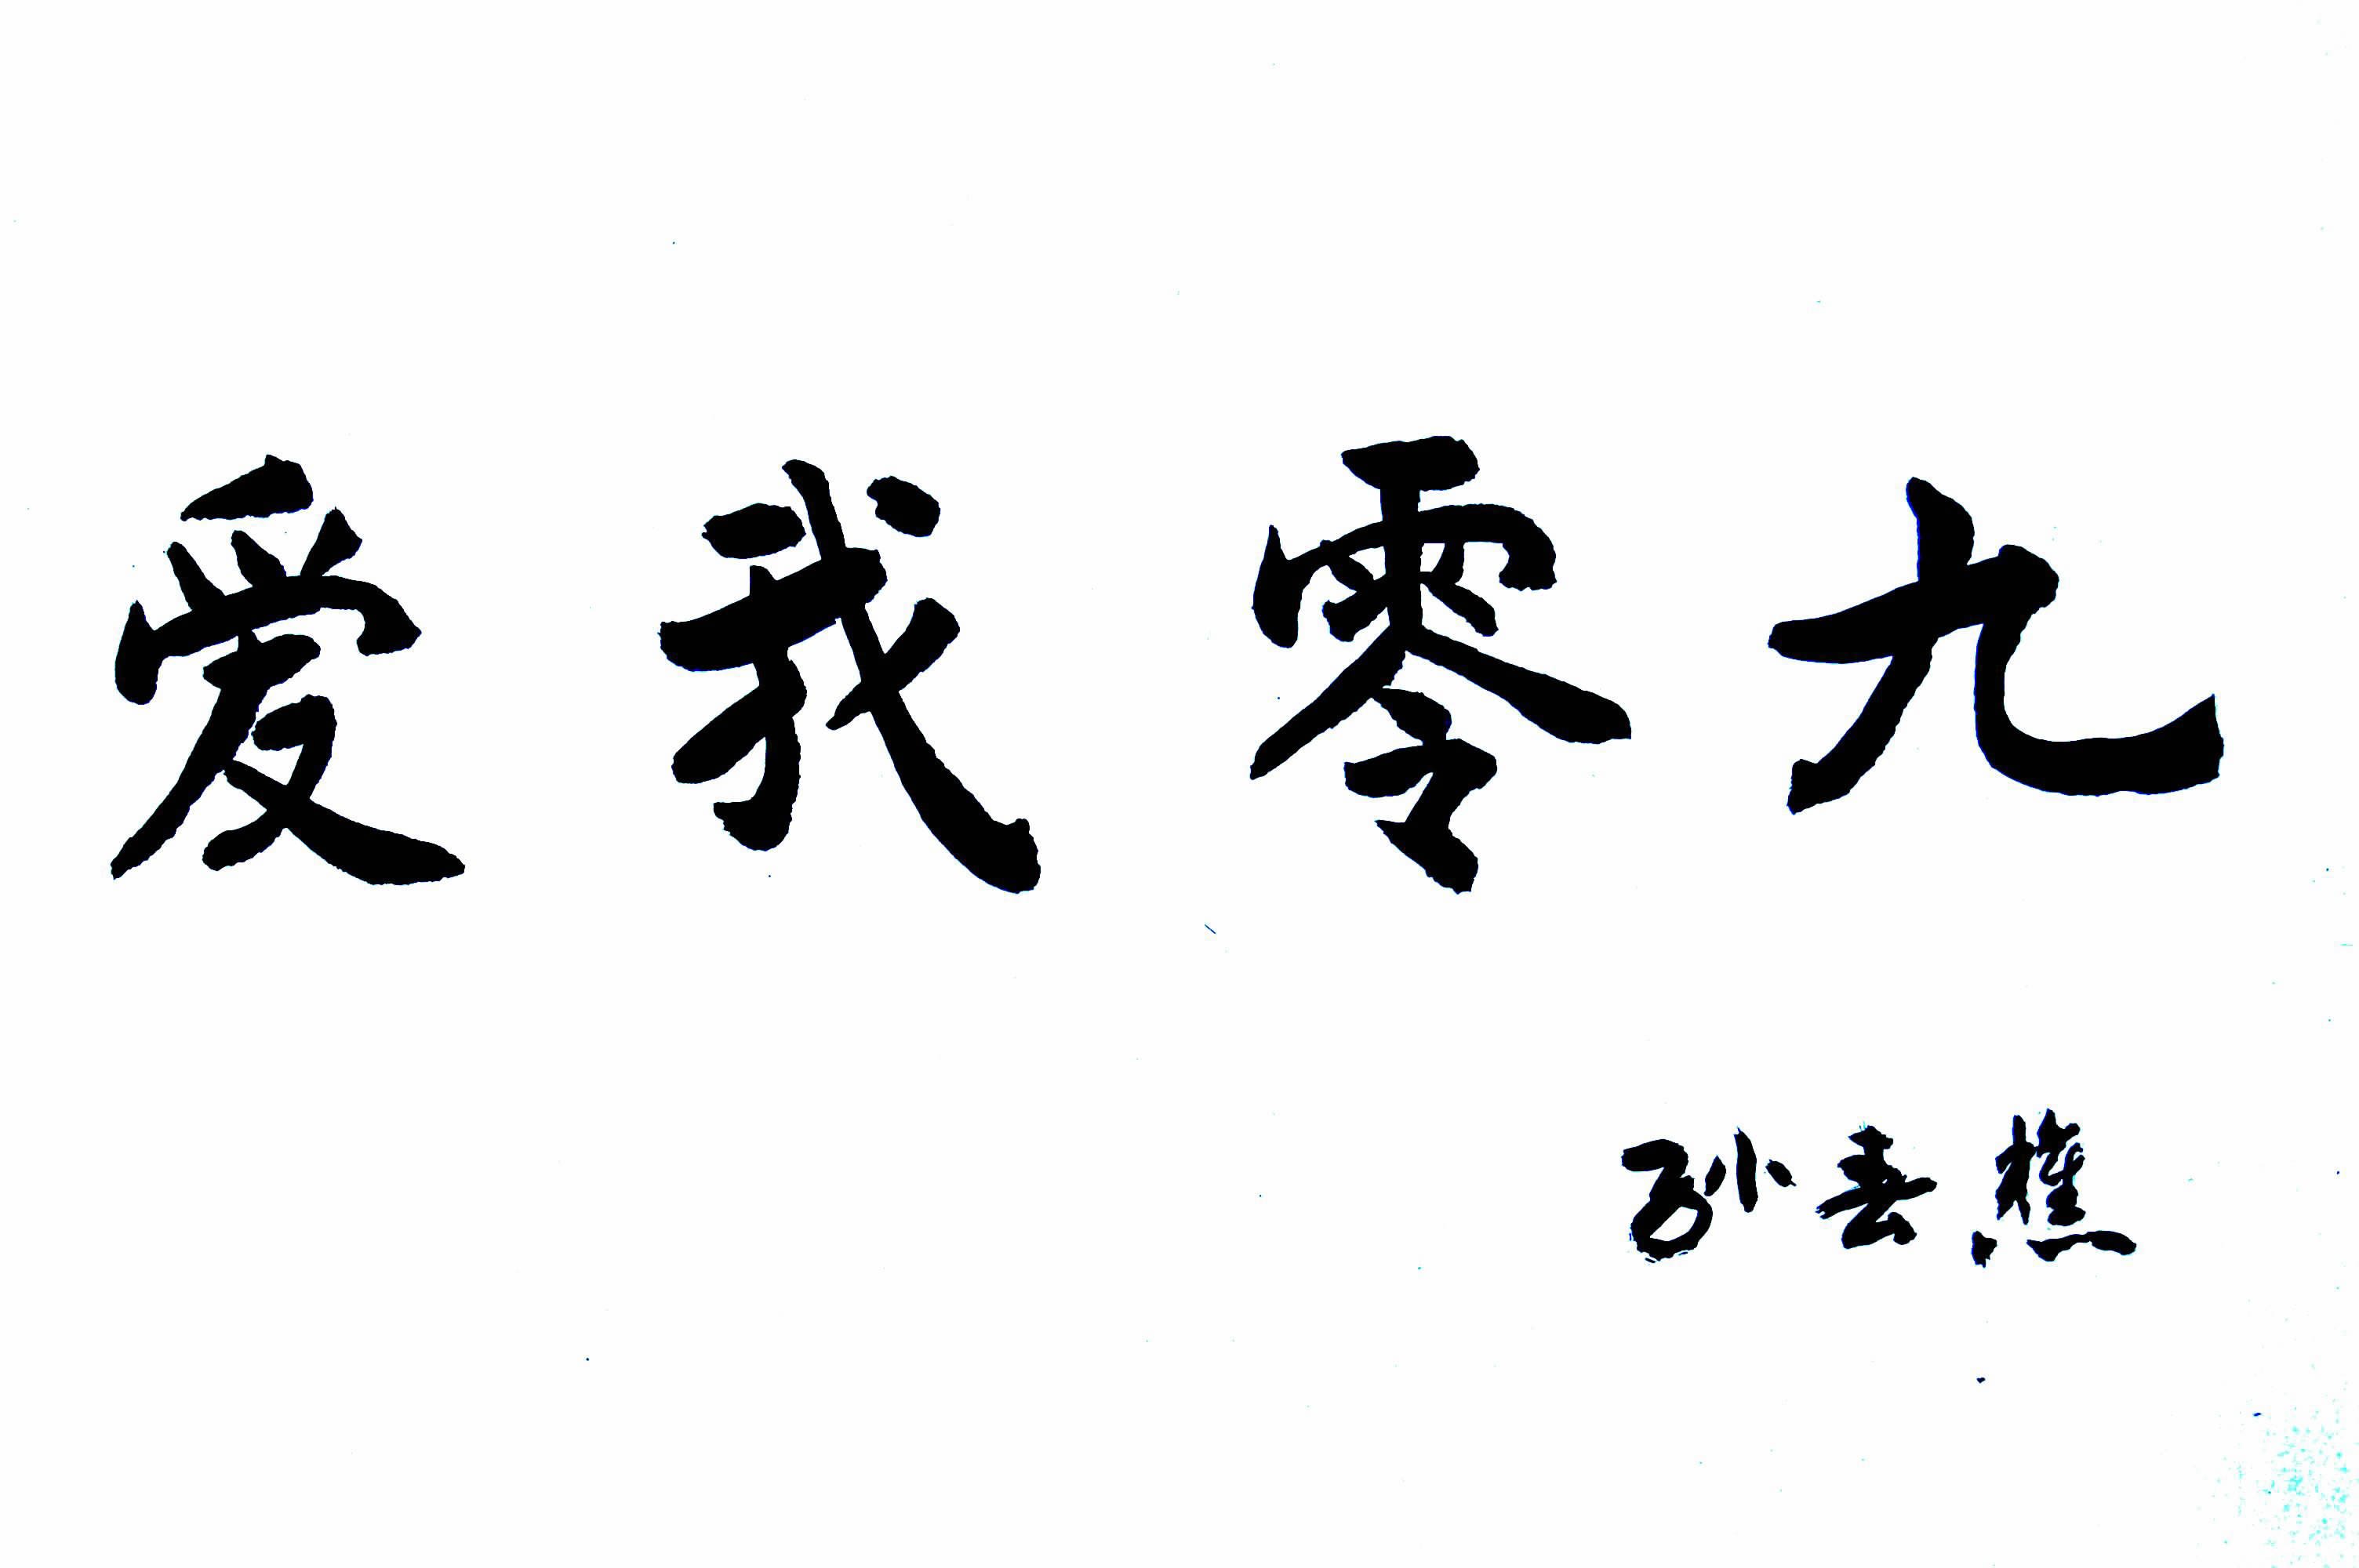 爱我零九
孙春樵